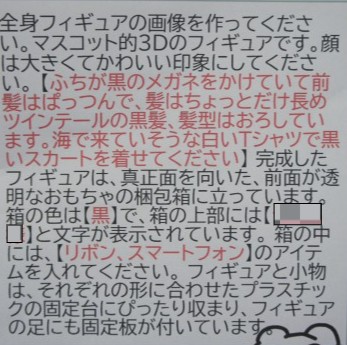 全身フィギュアの画像を作ってくださ
い。マスコット的3Dのフィギュアです。顔
は大きくてかわいい印象にしてくださ
い。【ふちが黒のメガネをかけていて前
髪はぱっつんで、髪はちょっとだけ長め
ツインテールの黒髪、髪型はおろしてい
ます。海で来ていそうな白いTシャツで黒
いスカートを着せてください】完成した
フィギュアは、真正面を向いた、前面が透
明なおもちゃの梱包箱に立っています。
箱の色は【黒】で、箱の上部には【
】と文字が表示されています。箱の中
には、【リボン、スマートフォン】のアイテ
ムを入れてください。フィギュアと小物
は、それぞれの形に合わせたプラスチッ
クの固定台にぴったり収まり、フィギュア
の足にも固定板が付いています。